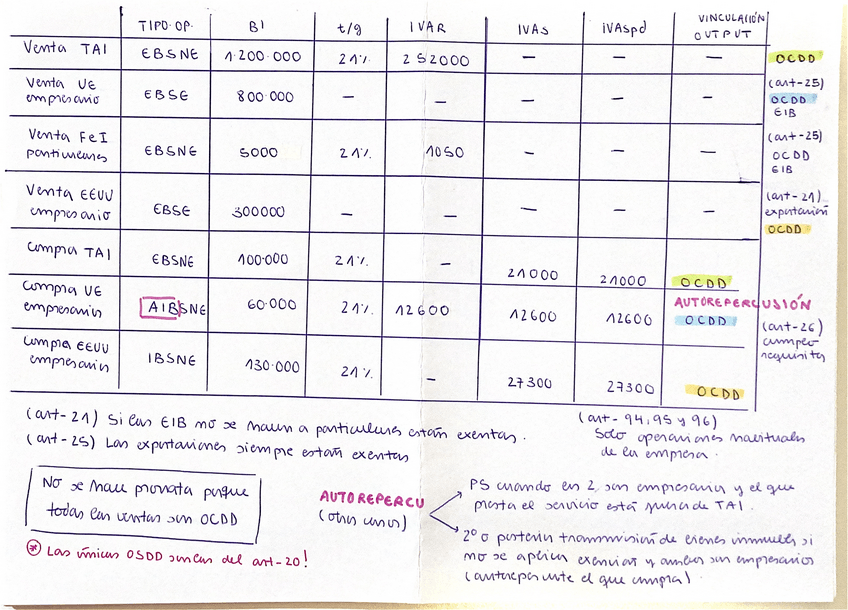 TIPO OP. BI t/g IVAR IVAs IVAspd VINCULACIÓN OUTPUT
Venta TAI EBSNE 1.200.000 21% 252000 — — — OCDD
Venta UE empresario EBSE 800.000 — — — — — (art-25) OCDD EIB
Venta FeI particulares EBSNE 5000 21% 1050 — — — (art-25) OCDD EIB
Venta EEUU empresario EBSE 300000 — — — — — (art-21) exportación OCDD
Compra TAI EBSNE 100.000 21% — 21000 21000 OCDD
Compra UE empresarios AIBSNE 60.000 21% 12600 12600 12600 AUTOREPERCUSIÓN OCDD (art-26) cumpleo requisitos
Compra EEUU empresario IBSNE 130.000 21% — 27300 27300 OCDD
(art-21) Si las EIB no se hacen a particulares están exentas.
(art-25) Las exportaciones siempre están exentas
(art-94, 95 y 96)
Solo operaciones habituales
de la empresa.
No se hace prorrata porque
todas las ventas son OCDD
* Las únicas OSDD son las del art-20!
AUTOREPERCU
(otros casos)
PS cuando en 2, son empresarios y el que
presta el servicio está fuera de TAI.
2º o posterior transmisión de bienes inmuebles si
no se aplica exención y ambos son empresarios
(autoreper​cute el que compra).